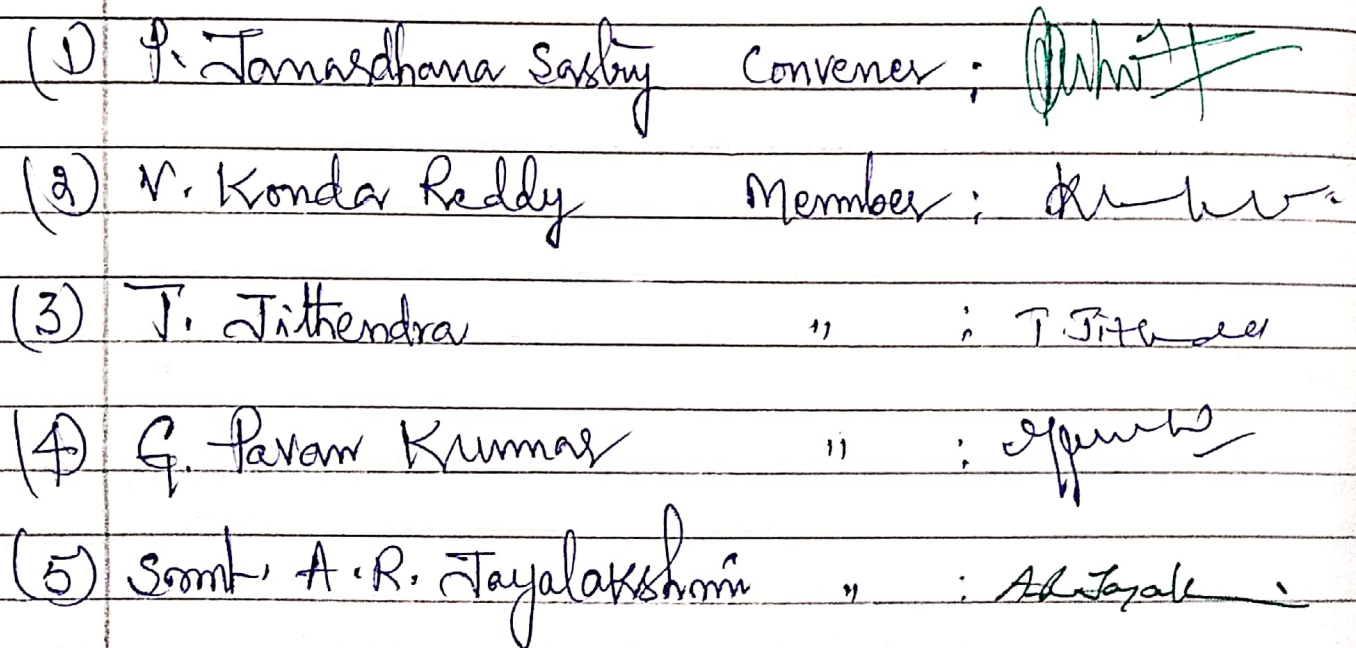 (1) P. Janardhana Sastry Convener :
(2) V. Konda Reddy Member :
(3) T. Jithendra " : T Jithendra
(4) G. Pavan Kumar " :
(5) Smt. A.R. Jayalakshmi " : A R Jayal